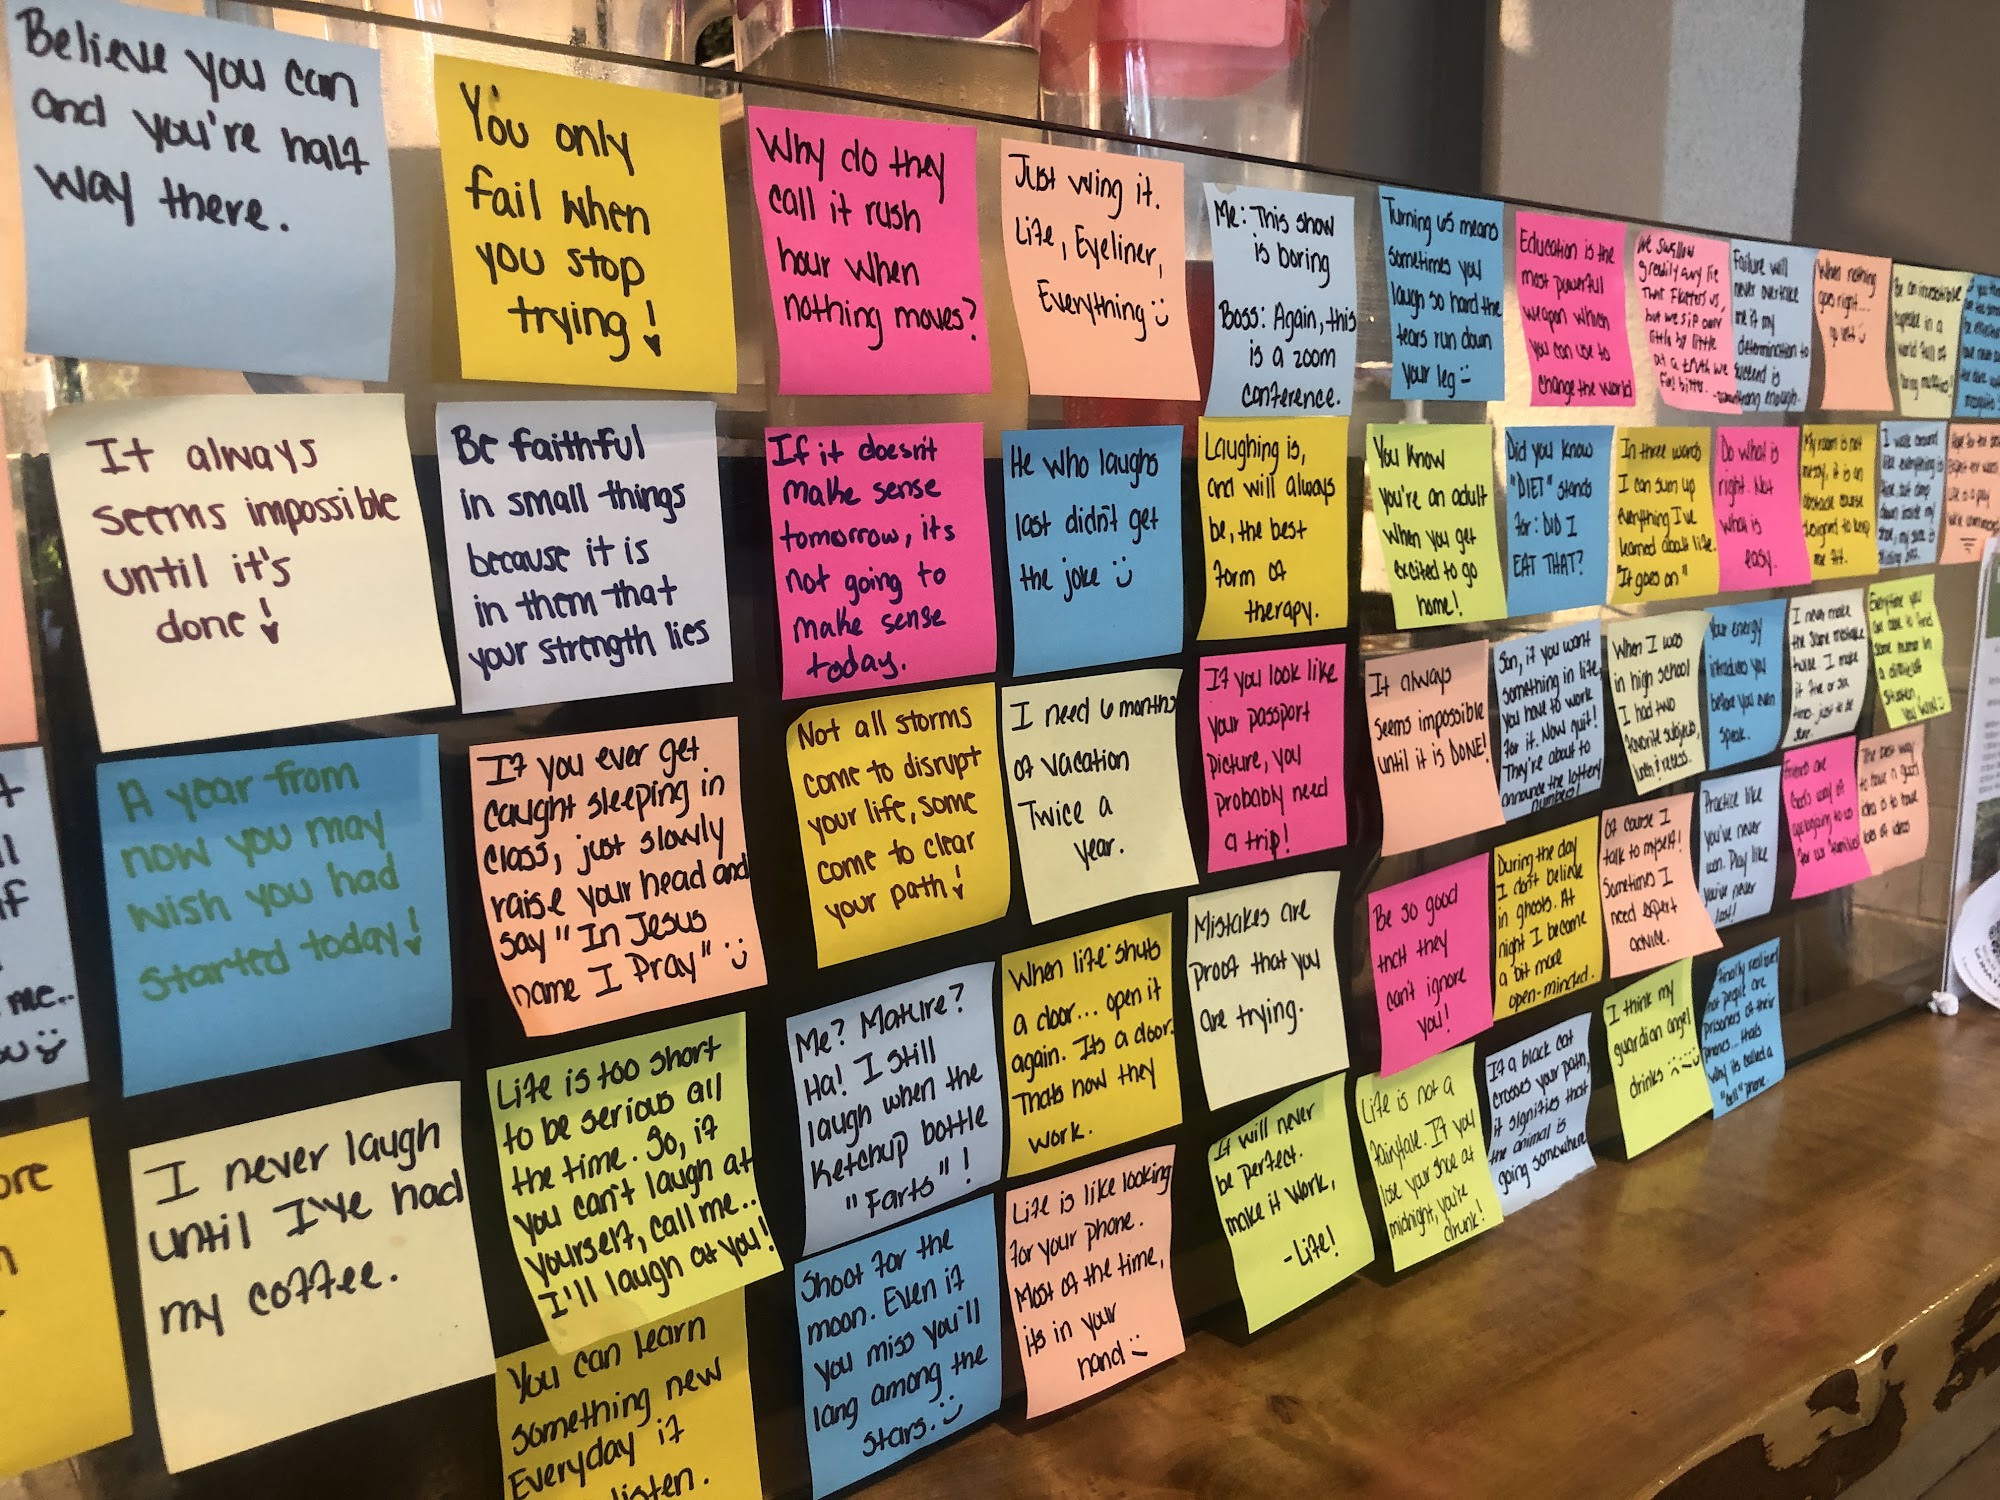 Believe you can
and you're half
way there.
You only
fail when
you stop
trying!
Why do they
call it rush
hour when
nothing moves?
Just wing it.
Life, Eyeliner,
Everything
Me: This show
is boring
Boss: Again, this
is a zoom
conference.
Turning 65 means
sometimes you
laugh so hard the
tears run down
your leg
Education is the
most powerful
weapon which
you can use to
change the world
We swallow
greedily any lie
that flatters us,
but we sip only
little by little
at a truth we
find bitter.
Failure will
never overtake
me if my
determination to
succeed is
strong enough.
When nothing
goes right...
go left
Be an
cupcake in a
world full of
It always
seems impossible
until it's
done!
Be faithful
in small things
because it is
in them that
your strength lies
If it doesn't
make sense
tomorrow, it's
not going to
make sense
today.
He who laughs
last didn't get
the joke
Laughing is,
and will always
be, the best
form of
therapy.
You know
you're an adult
when you get
excited to go
home!
Did you know
"DIET" stands
for: DID I
EAT THAT?
In three words
I can sum up
everything I've
learned about life.
"It goes on"
Do what is
right. Not
what is
easy.
My room is not
messy, it is an
obstacle course
designed to keep
me fit.
I walk around
like everything is
fine, but deep
down inside my
shoe, my sock is
sliding off.
A year from
now you may
wish you had
started today!
If you ever get
caught sleeping in
class, just slowly
raise your head and
say "In Jesus
name I Pray"
Not all storms
come to disrupt
your life, some
come to clear
your path!
I need 6 months
of vacation
Twice a
year.
If you look like
your passport
picture, you
probably need
a trip!
It always
seems impossible
until it is DONE!
Son, if you want
something in life,
you have to work
for it. Now quit!
They're about to
announce the lottery
numbers!
When I was
in high school
I had two
favorite subjects,
lunch & recess.
Your energy
introduces you
before you even
speak.
I never make
the same mistake
twice. I make
it five or six
times, just to be
sure.
Everytime you
are able to find
some humor in
a difficult
situation
you win
me..
I never laugh
until I've had
my coffee.
Life is too short
to be serious all
the time. So, if
you can't laugh at
yourself, call me..
I'll laugh at you!
Me? Mature?
Ha! I still
laugh when the
ketchup bottle
"Farts"!
When life shuts
a door... open it
again. Its a door.
Thats how they
work.
Mistakes are
proof that you
are trying.
Be so good
that they
can't ignore
you!
During the day
I don't believe
in ghosts. At
night I become
a bit more
open-minded.
Of course I
talk to myself!
Sometimes I
need expert
advice.
Practice like
you've never
won. Play like
you've never
lost!
Friends are
God's way of
apologizing to us
for our families
The best way
to have a good
idea is to have
lots of ideas
You can learn
something new
Everyday if
listen.
Shoot for the
moon. Even if
you miss you'll
lang among the
stars.
Life is like looking
for your phone.
Most of the time,
its in your
hand
It will never
be perfect.
make it work,
-Life!
Life is not a
fairytale. If you
lose your shoe at
midnight, you're
drunk!
If a black cat
crosses your path,
it signifies that
the animal is
going somewhere
I think my
guardian angel
drinks
I finally realized
that people are
prisoners of their
phones... thats
why its called a
"cell" phone.